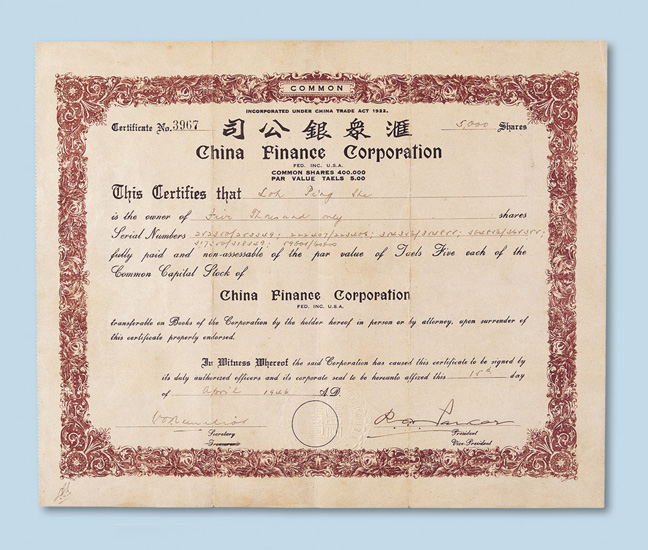 COMMON
INCORPORATED UNDER CHINA TRADE ACT 1922,
Certificate No. 3967
司公銀眾滙
5,000 Shares
China Finance Corporation
FED. INC. U.S.A.
COMMON SHARES 400.000
PAR VALUE TAELS 5.00
This Certifies that Loh Ping She
is the owner of Five Thousand only shares
Serial Numbers
fully paid and non-assessable of the par value of Taels Five each of the
Common Capital Stock of
China Finance Corporation
FED. INC. U.S.A.
transferable on Books of the Corporation by the holder hereof in person or by attorney, upon surrender of
this certificate properly endorsed.
In Witness Whereof the said Corporation has caused this certificate to be signed by
its duly authorized officers and its corporate seal to be hereunto affixed this 15th day
of April 1946 A.D.
Secretary
Treasurer
President
Vice-President